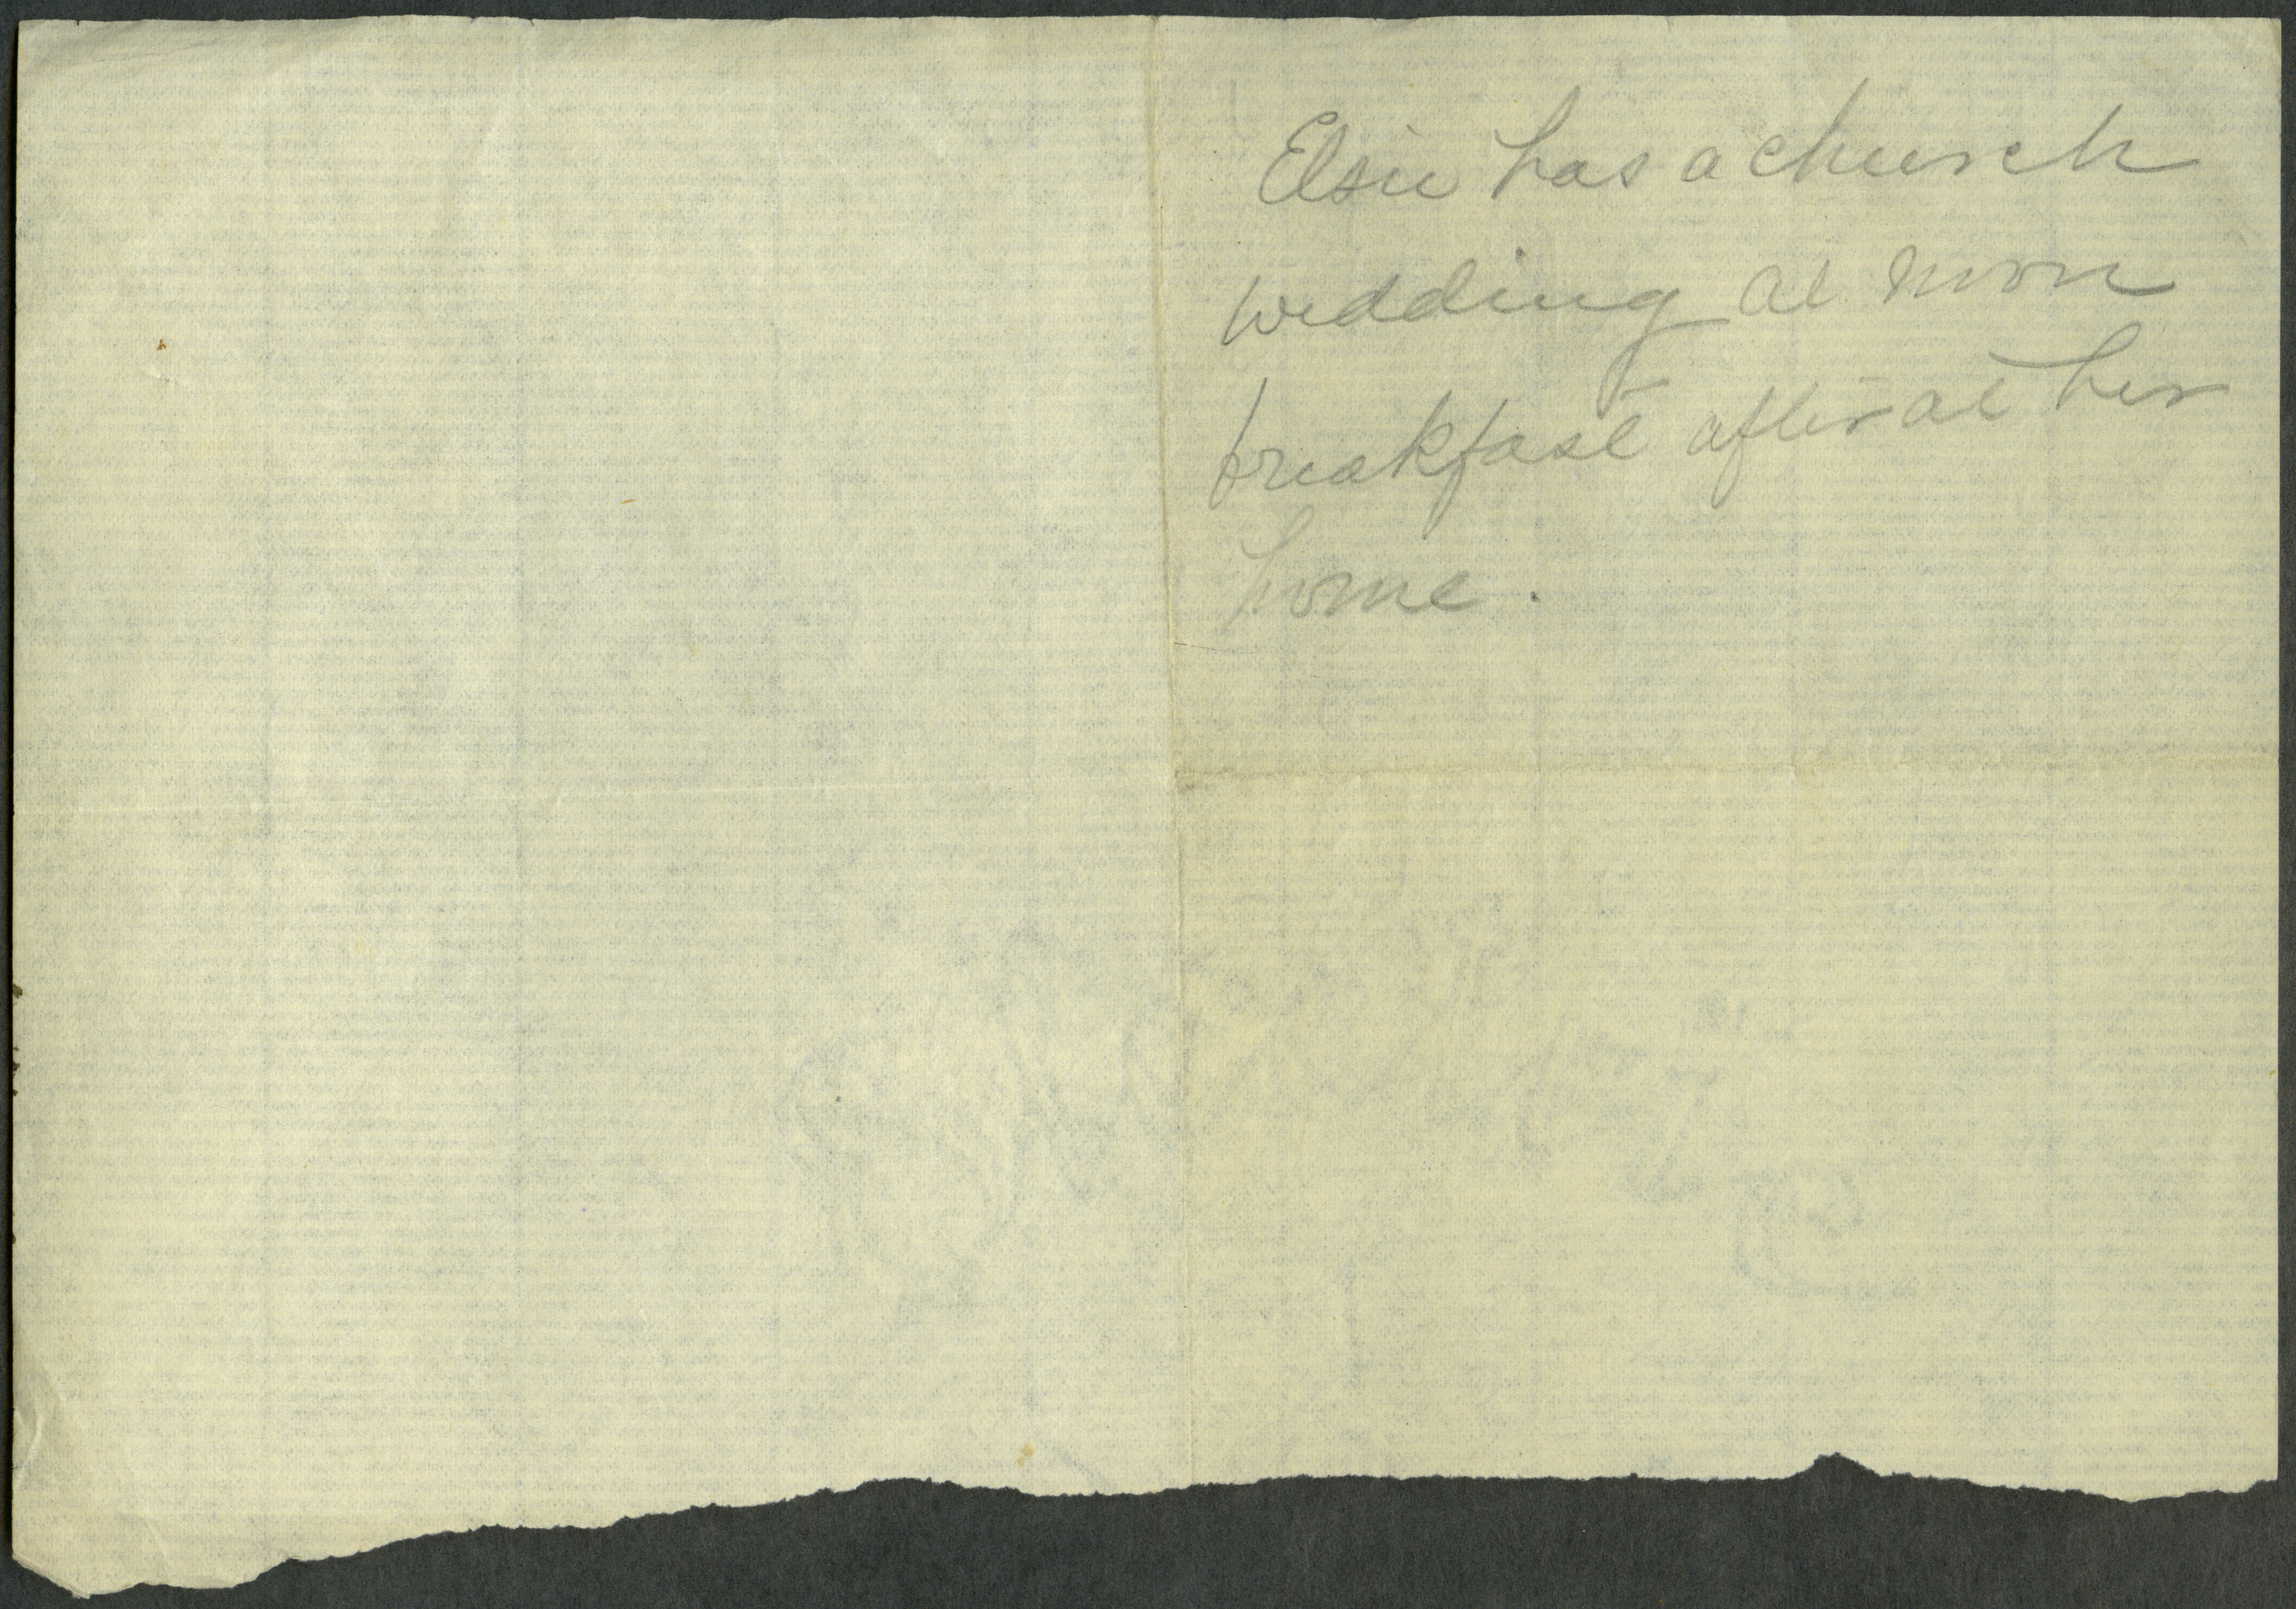 Elsie has a church
wedding at noon
breakfast after at her
home.